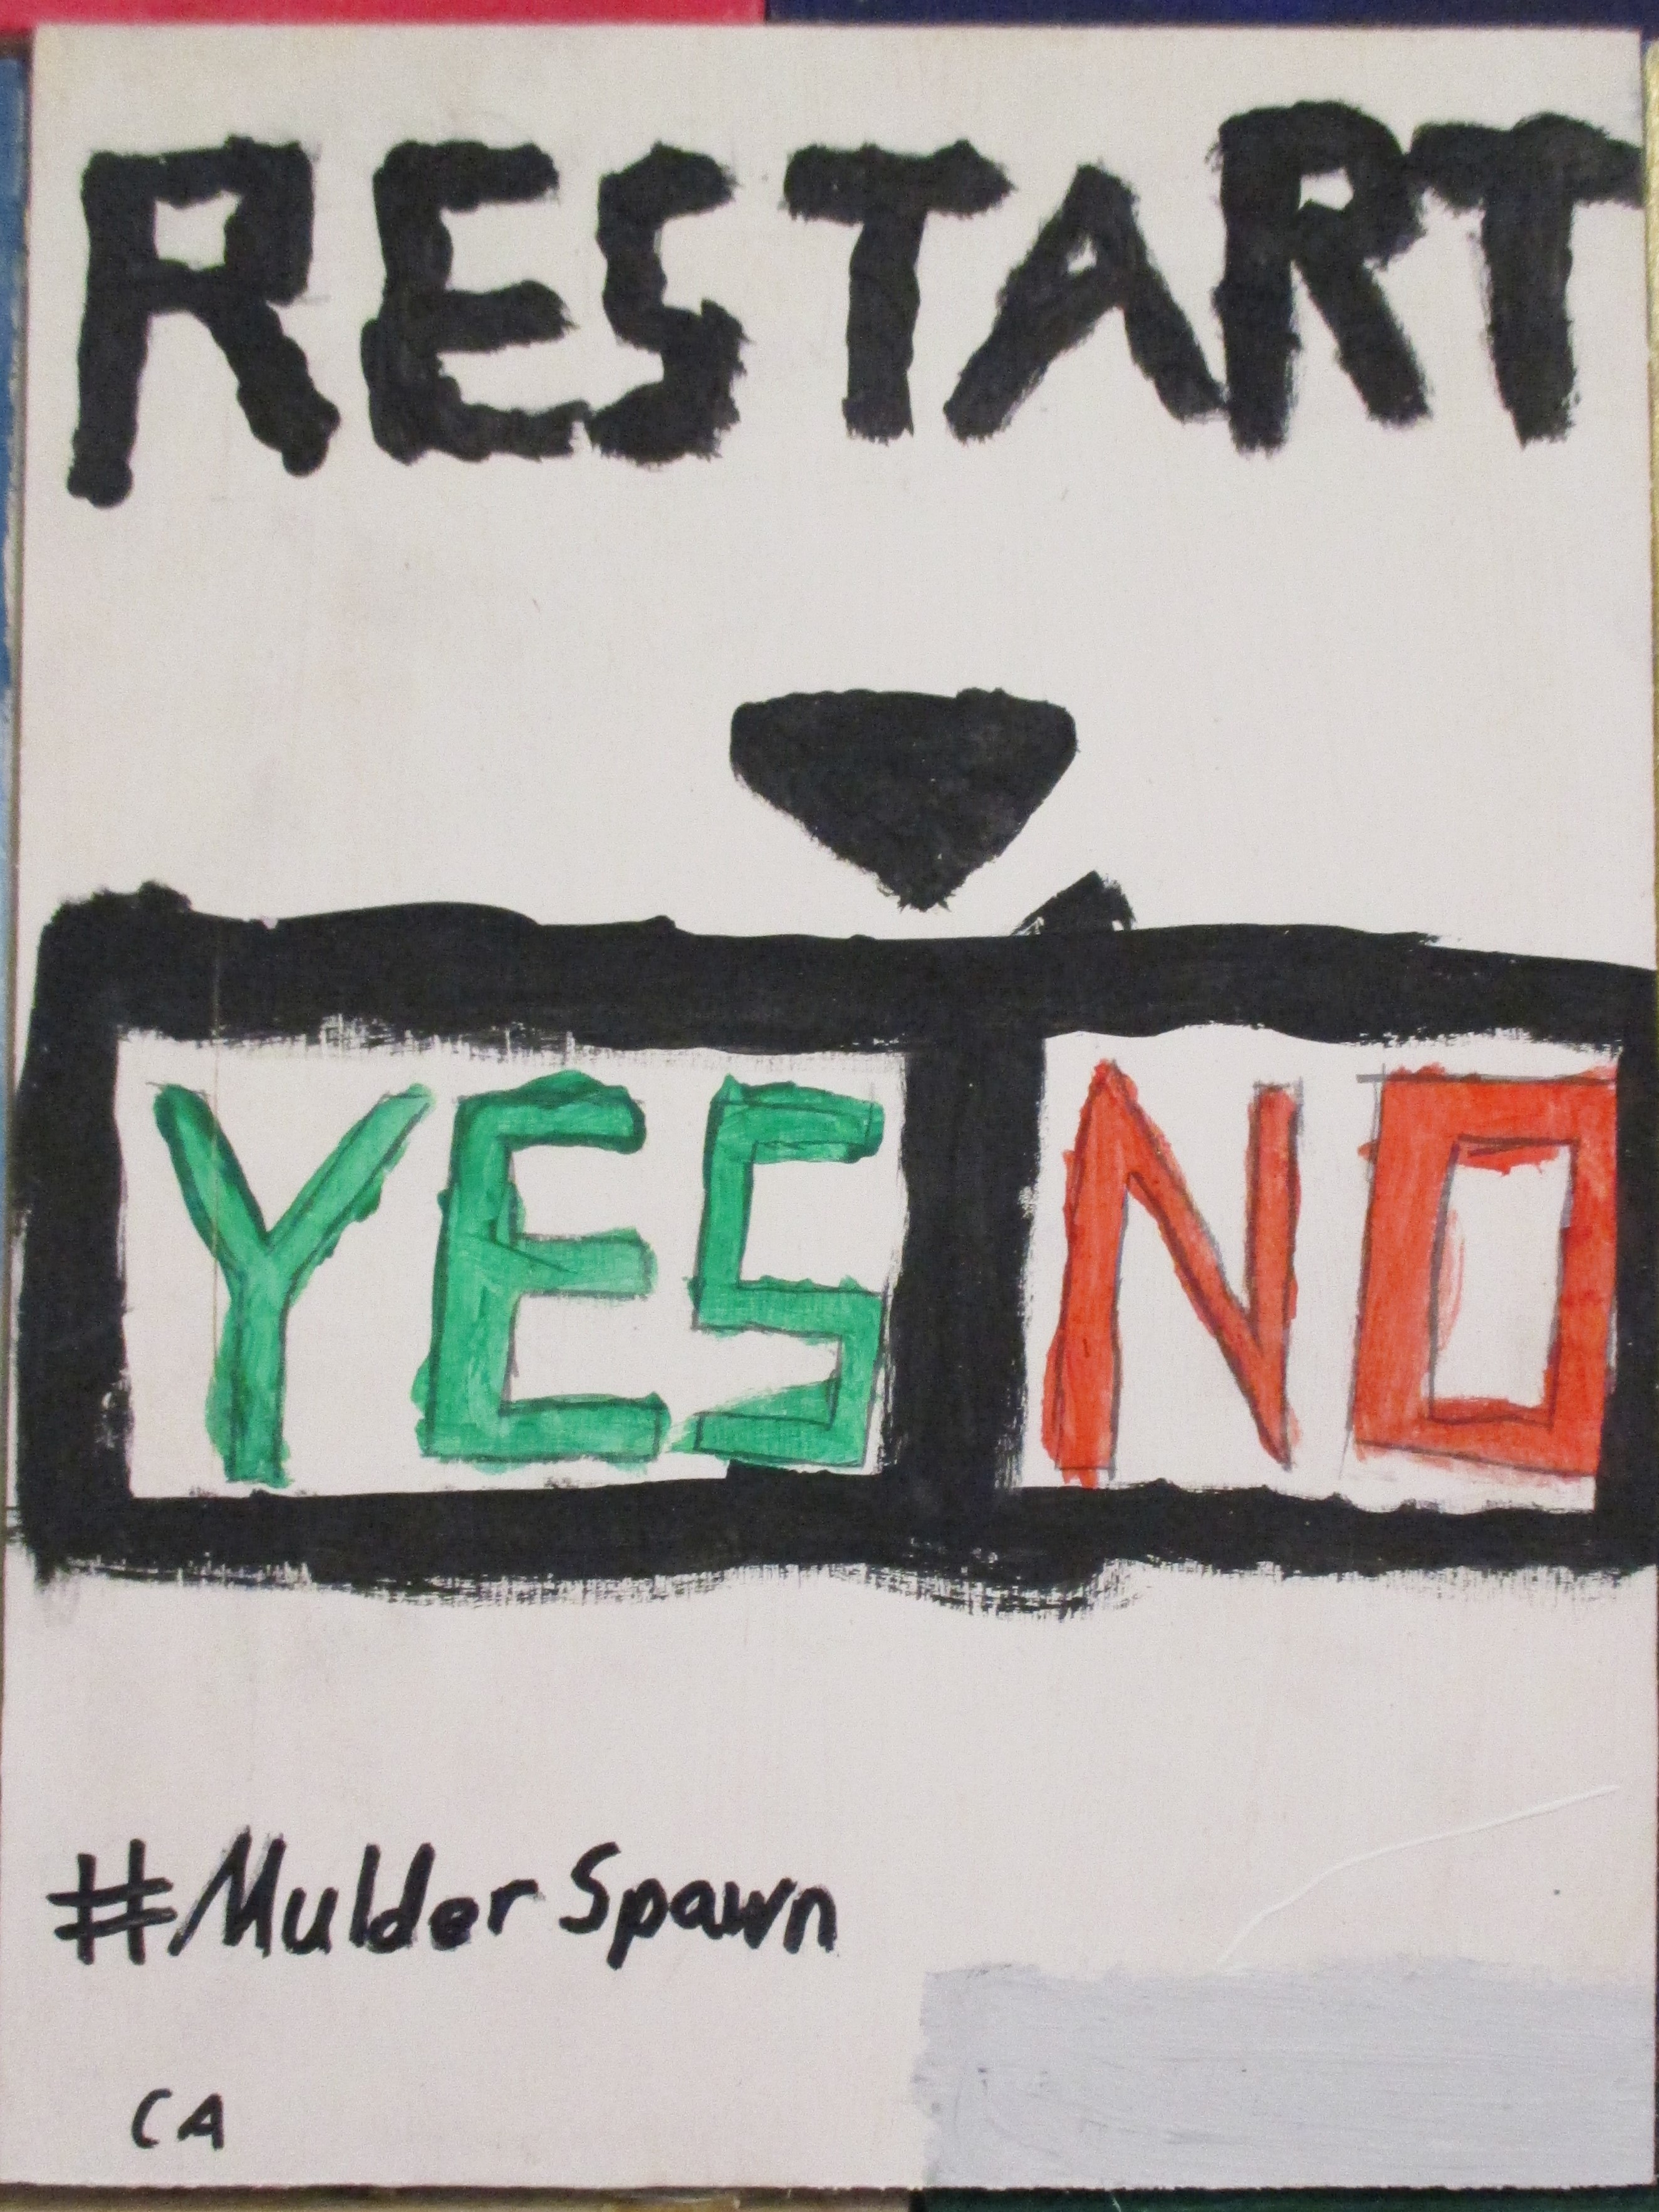 RESTART
YES NO
#Mulder Spawn
CA